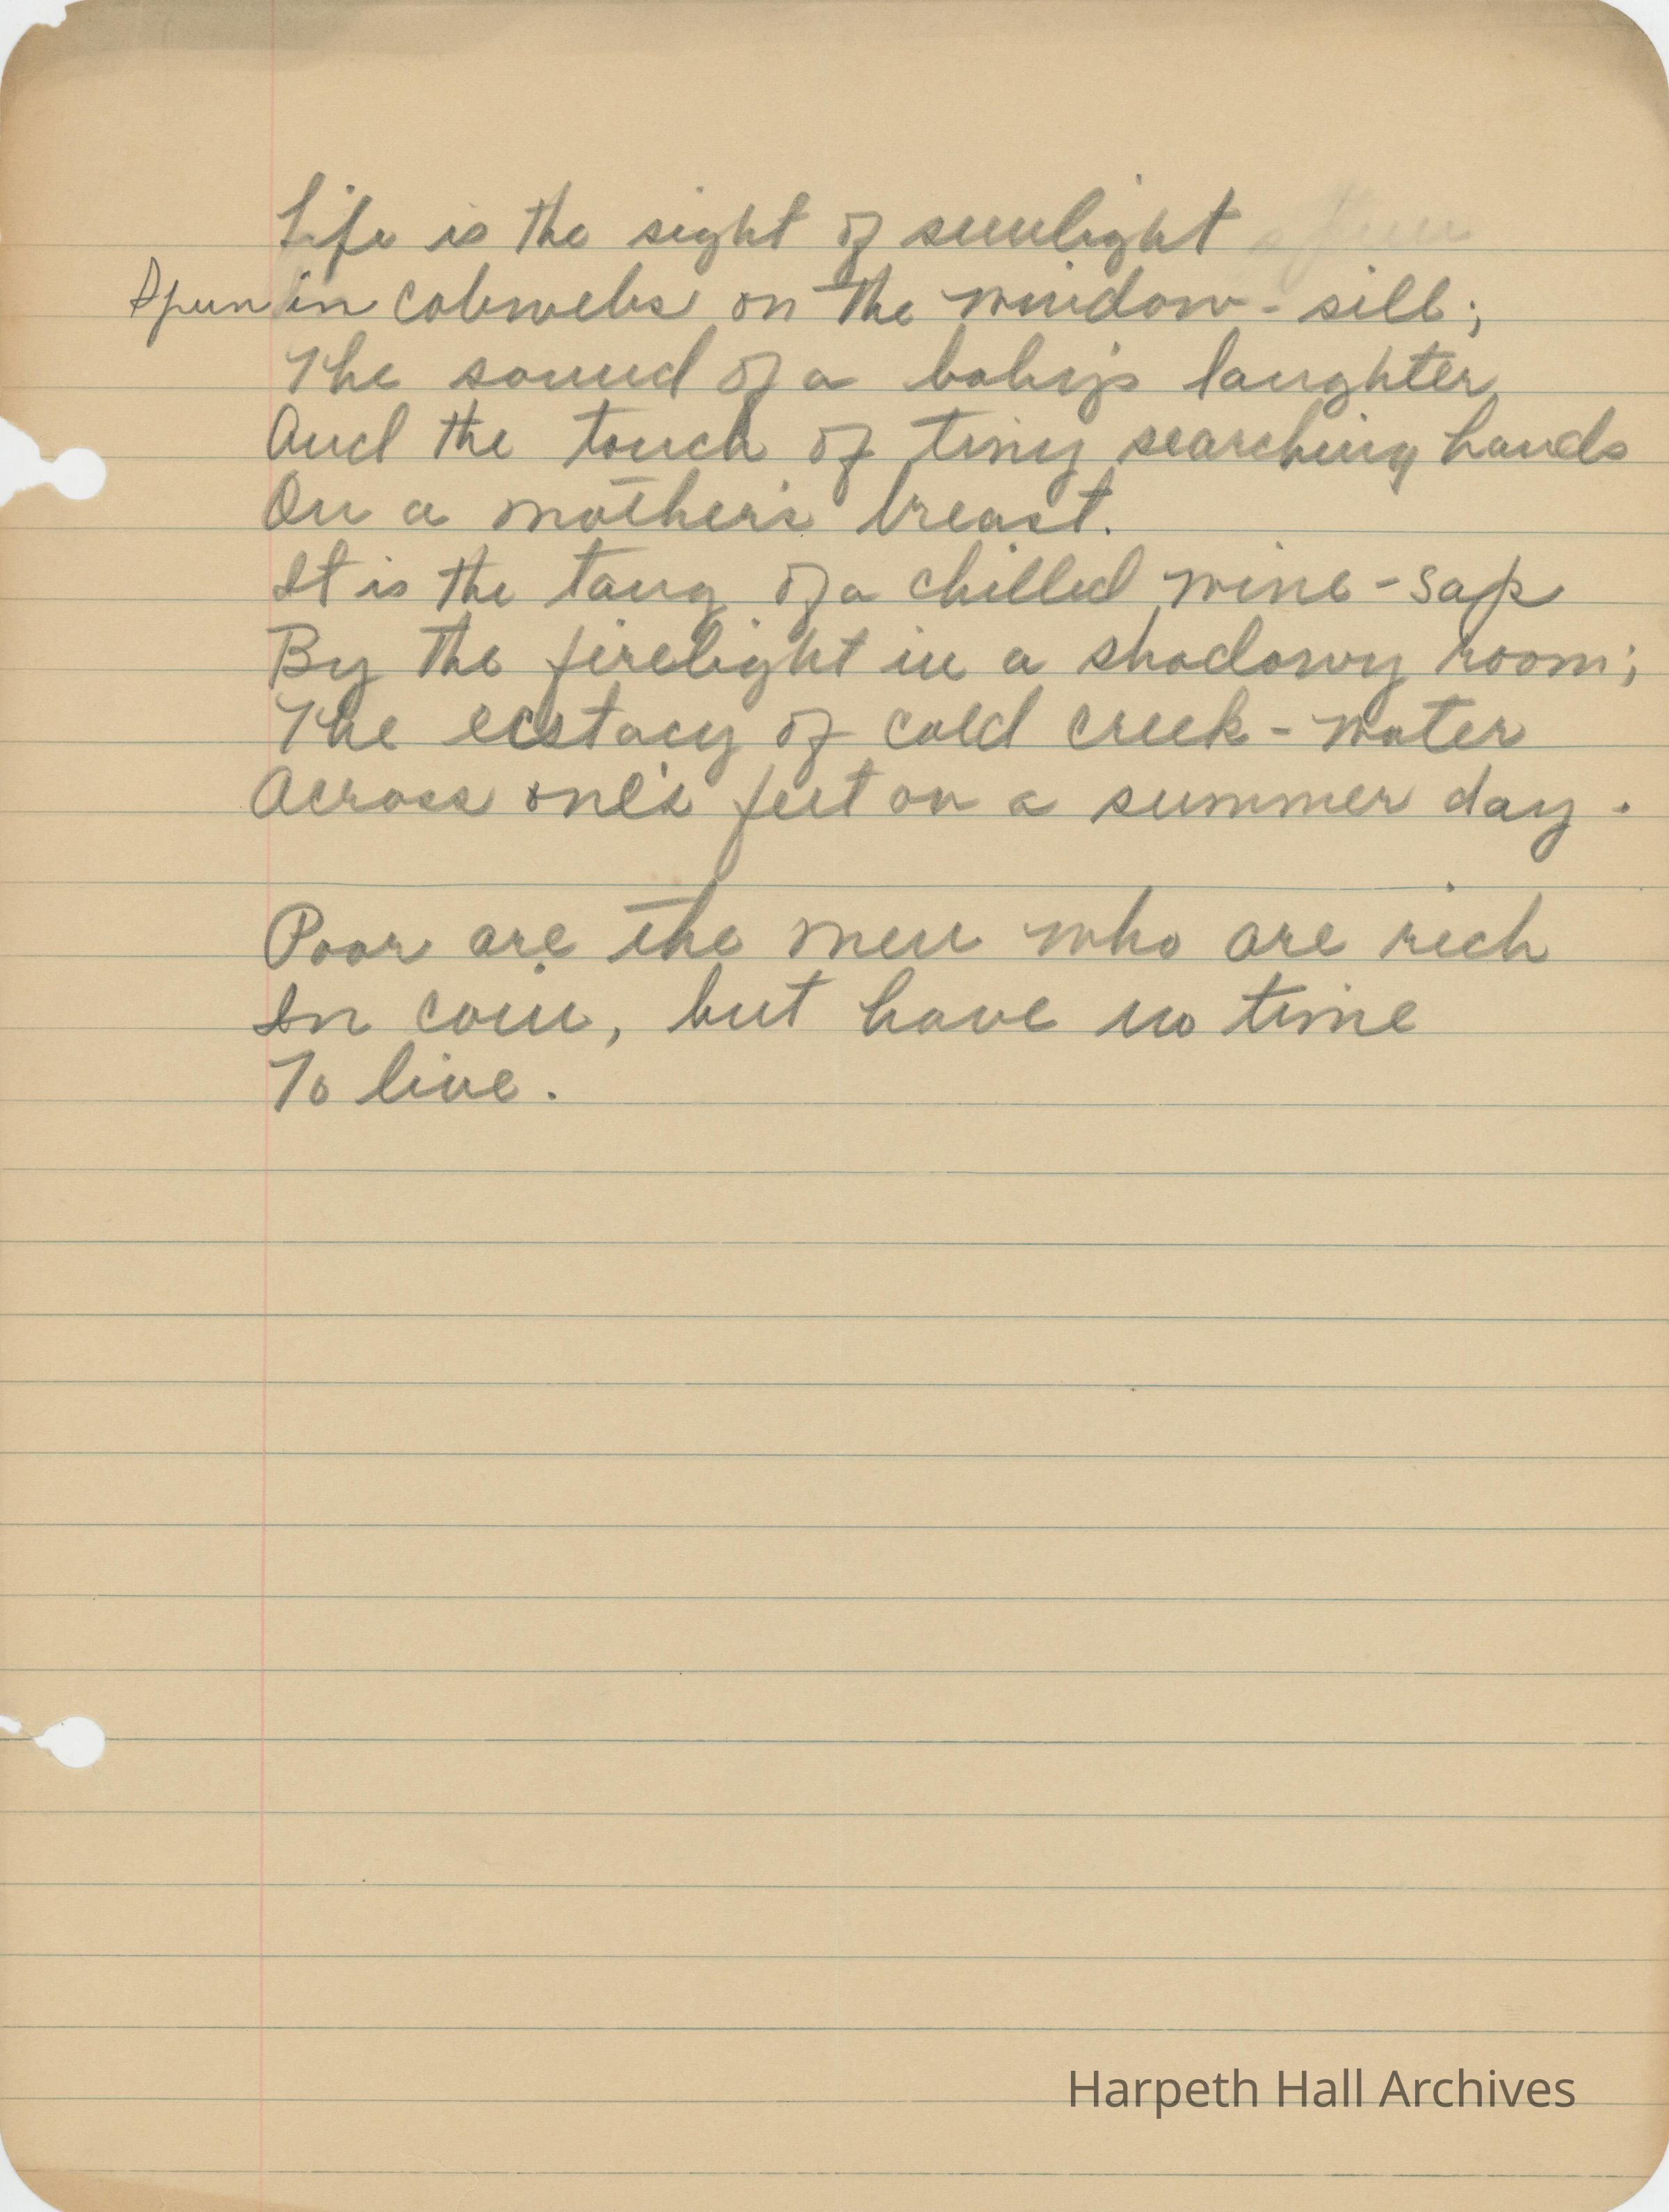 Life is the sight of sunlight spun
Spun in cobwebs on the window-sill;
The sound of a baby's laughter
And the touch of tiny searching hands
On a mother's breast.
It is the tang of a chilled wine-sap
By the firelight in a shadowy room;
The ecstacy of cold creek-water
Across one's feet on a summer day.
Poor are the men who are rich
In coin, but have no time
To live.
Harpeth Hall Archives